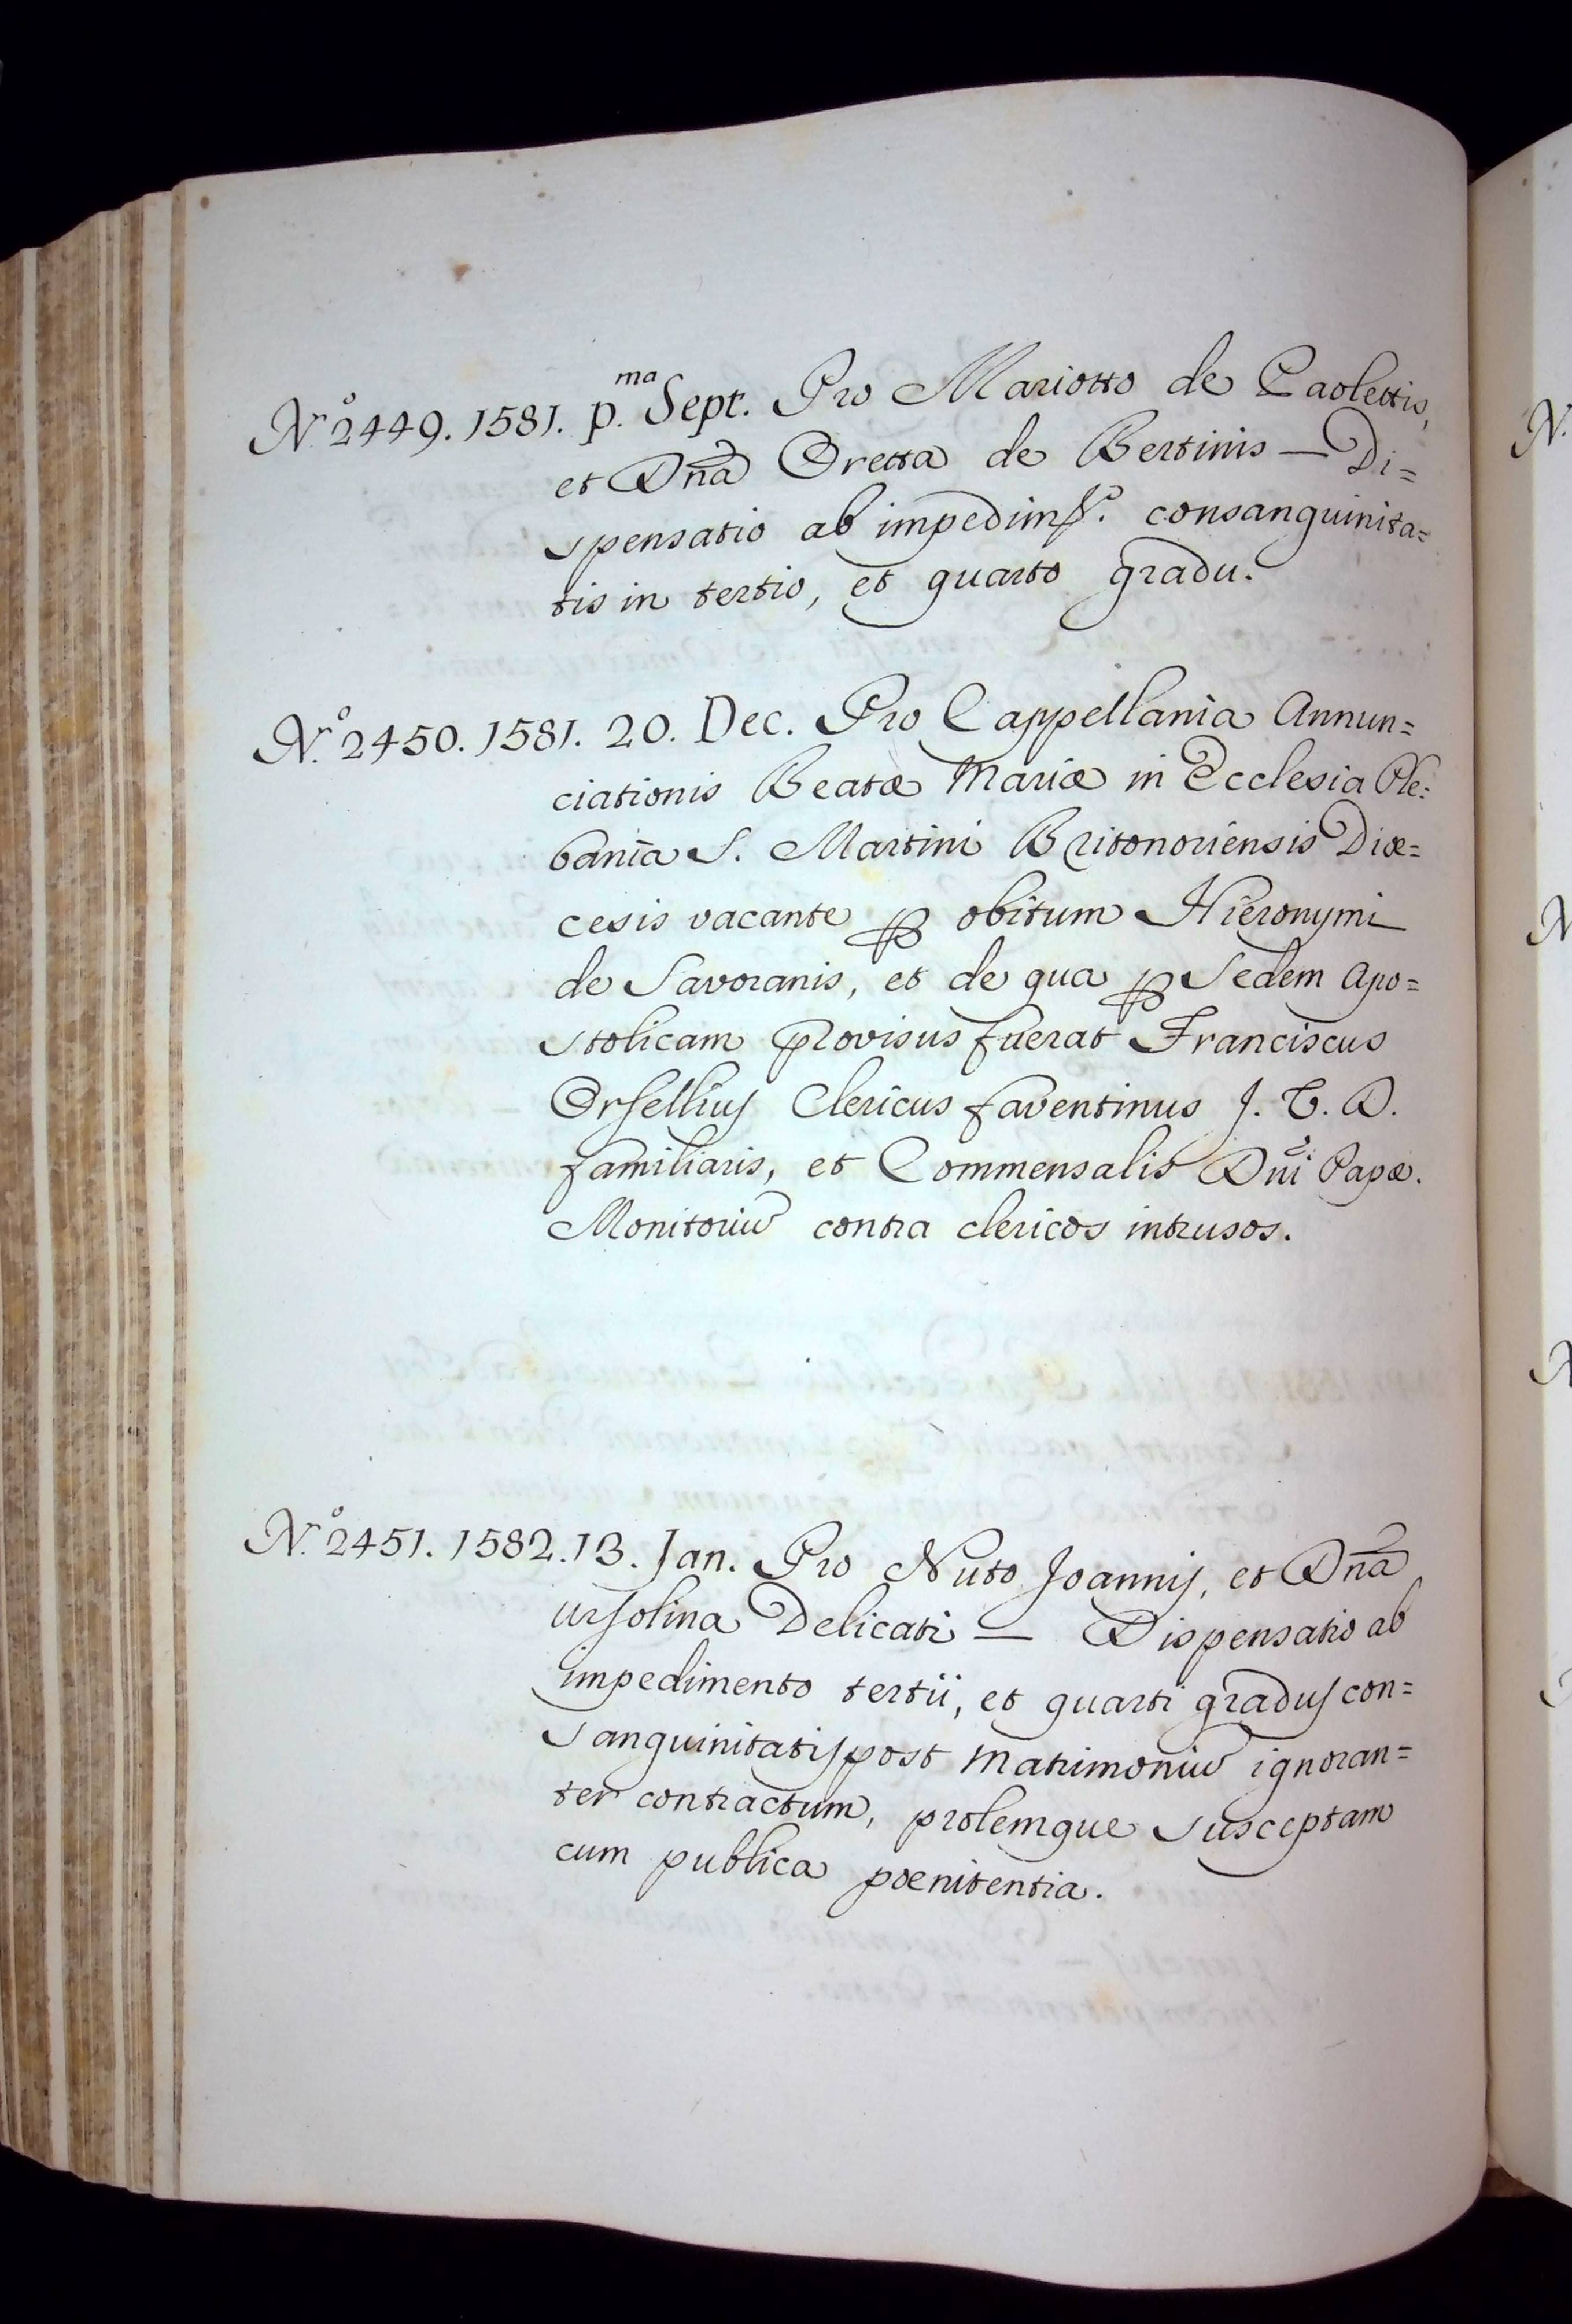 N.º 2449. 1581. p.ma Sept. Pro Mariotto de Paolettis,
et Dña Oretta de Bertinis — Di=
spensatio ab impedim.º consanguinita=
tis in tertio, et quarto gradu.
N.º 2450. 1581. 20. Dec. Pro Cappellania Annun=
ciationis Beatæ Mariæ in Ecclesia Ple=
bania S. Martini Britonoriensis Diœ=
cesis vacante ꝑ obitum Hieronymi
de Savoranis, et de qua ꝑ Sedem Apo=
stolicam provisus fuerat Franciscus
Orsellius Clericus faventinus J. U. D.
familiaris, et Commensalis Dñi Papæ.
Monitoriũ contra clericos intrusos.
N.º 2451. 1582. 13. Jan. Pro Nuto Joannis, et Dña
Ursolina Delicati — Dispensatio ab
impedimento tertii, et quarti gradus con=
sanguinitatis post Matrimoniũ ignoran=
ter contractum, prolemque susceptam
cum publica pœnitentia.